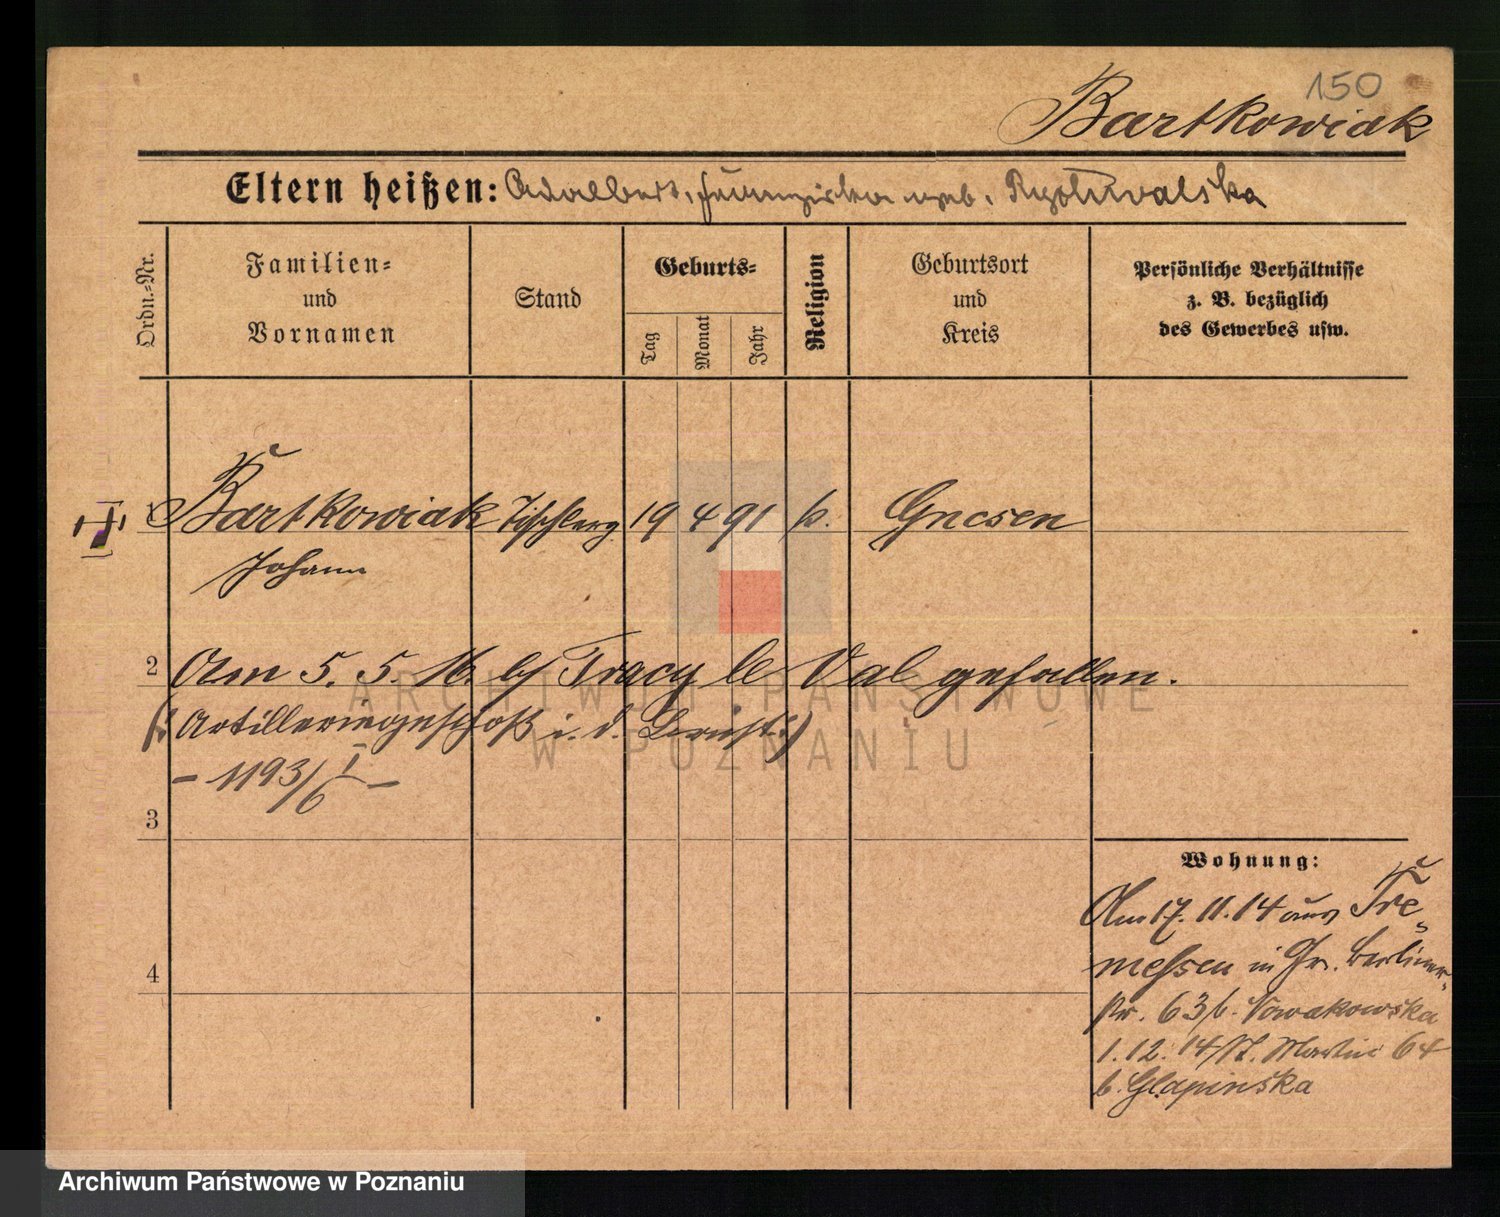 150
Bartkowiak
Eltern heißen: Adalbert, Franziska geb.
Ordn.-Nr.
Familien-
und
Vornamen
Stand
Geburts-
Tag
Monat
Jahr
Religion
Geburtsort
und
Kreis
Persönliche Verhältnisse
z. B. bezüglich
des Gewerbes usw.
1 Bartkowiak Tischlerg 19 4 91 k. Gnesen
Johann
2 Am 5. 5. 16. b/ Tracy le Val gefallen.
Artilleriegeschoß i. d. Brust)
- 1193/6 I -
3
Wohnung:
Am 17. 11. 14 aus Tre-
messen in Gr. Berliner-
str. 63 b. Nowakowska
1. 12. 14 St. Martin 64
b. Glapinska
4
ARCHIWUM PAŃSTWOWE
W POZNANIU
Archiwum Państwowe w Poznaniu